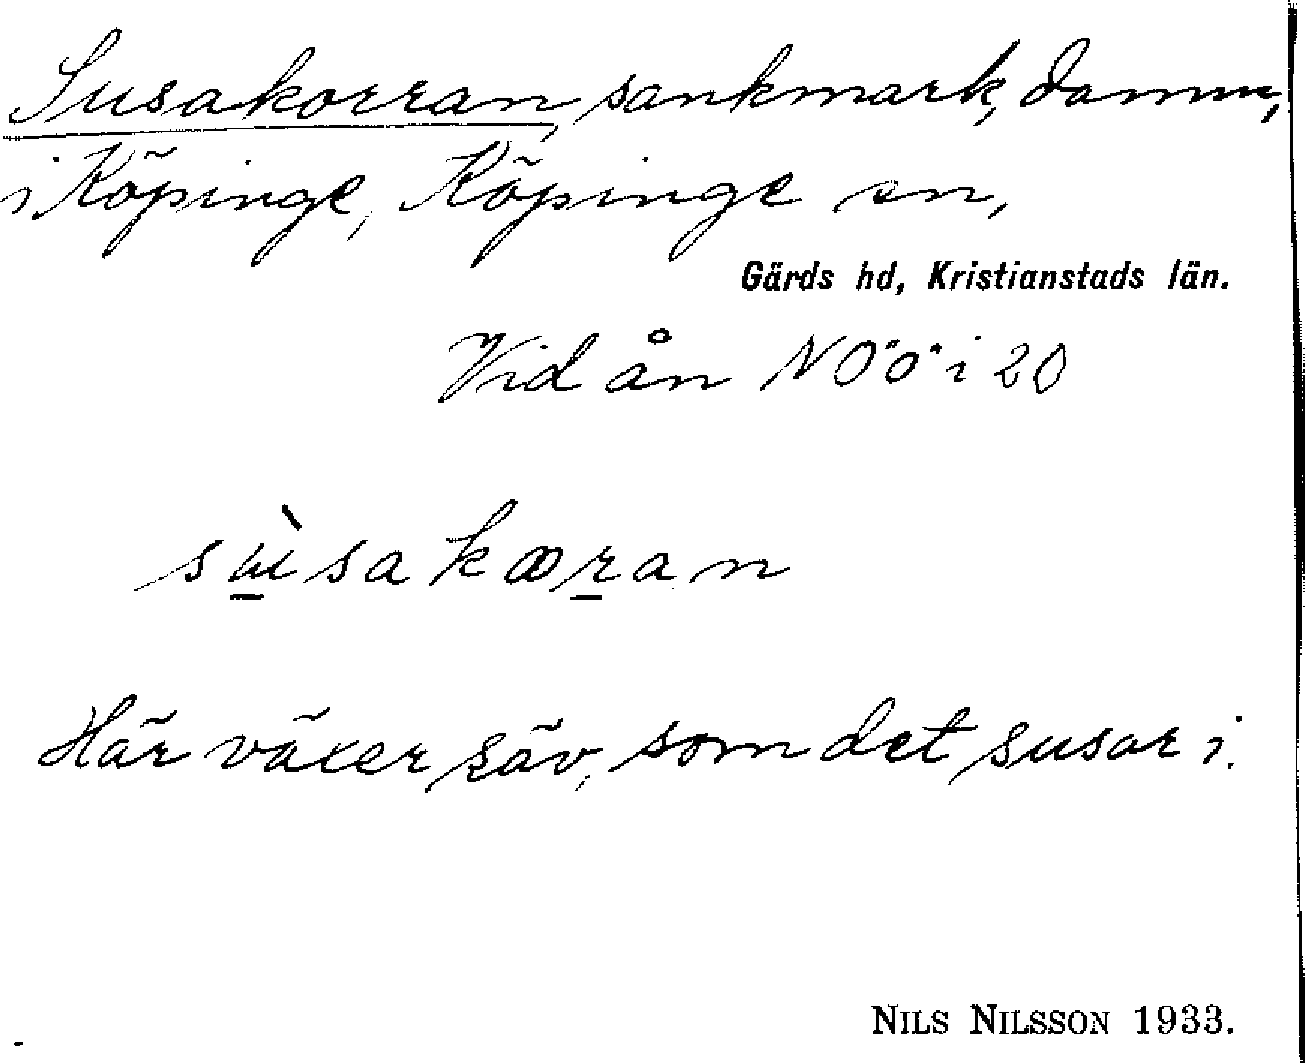 Susakorran, sankmark, damm,
i Köpinge, Köpinge sn,
Gärds hd, Kristianstads län.
Vid ån NÖ ö i 20
Här växer säv, som det susar i.
NILS NILSSON 1933.